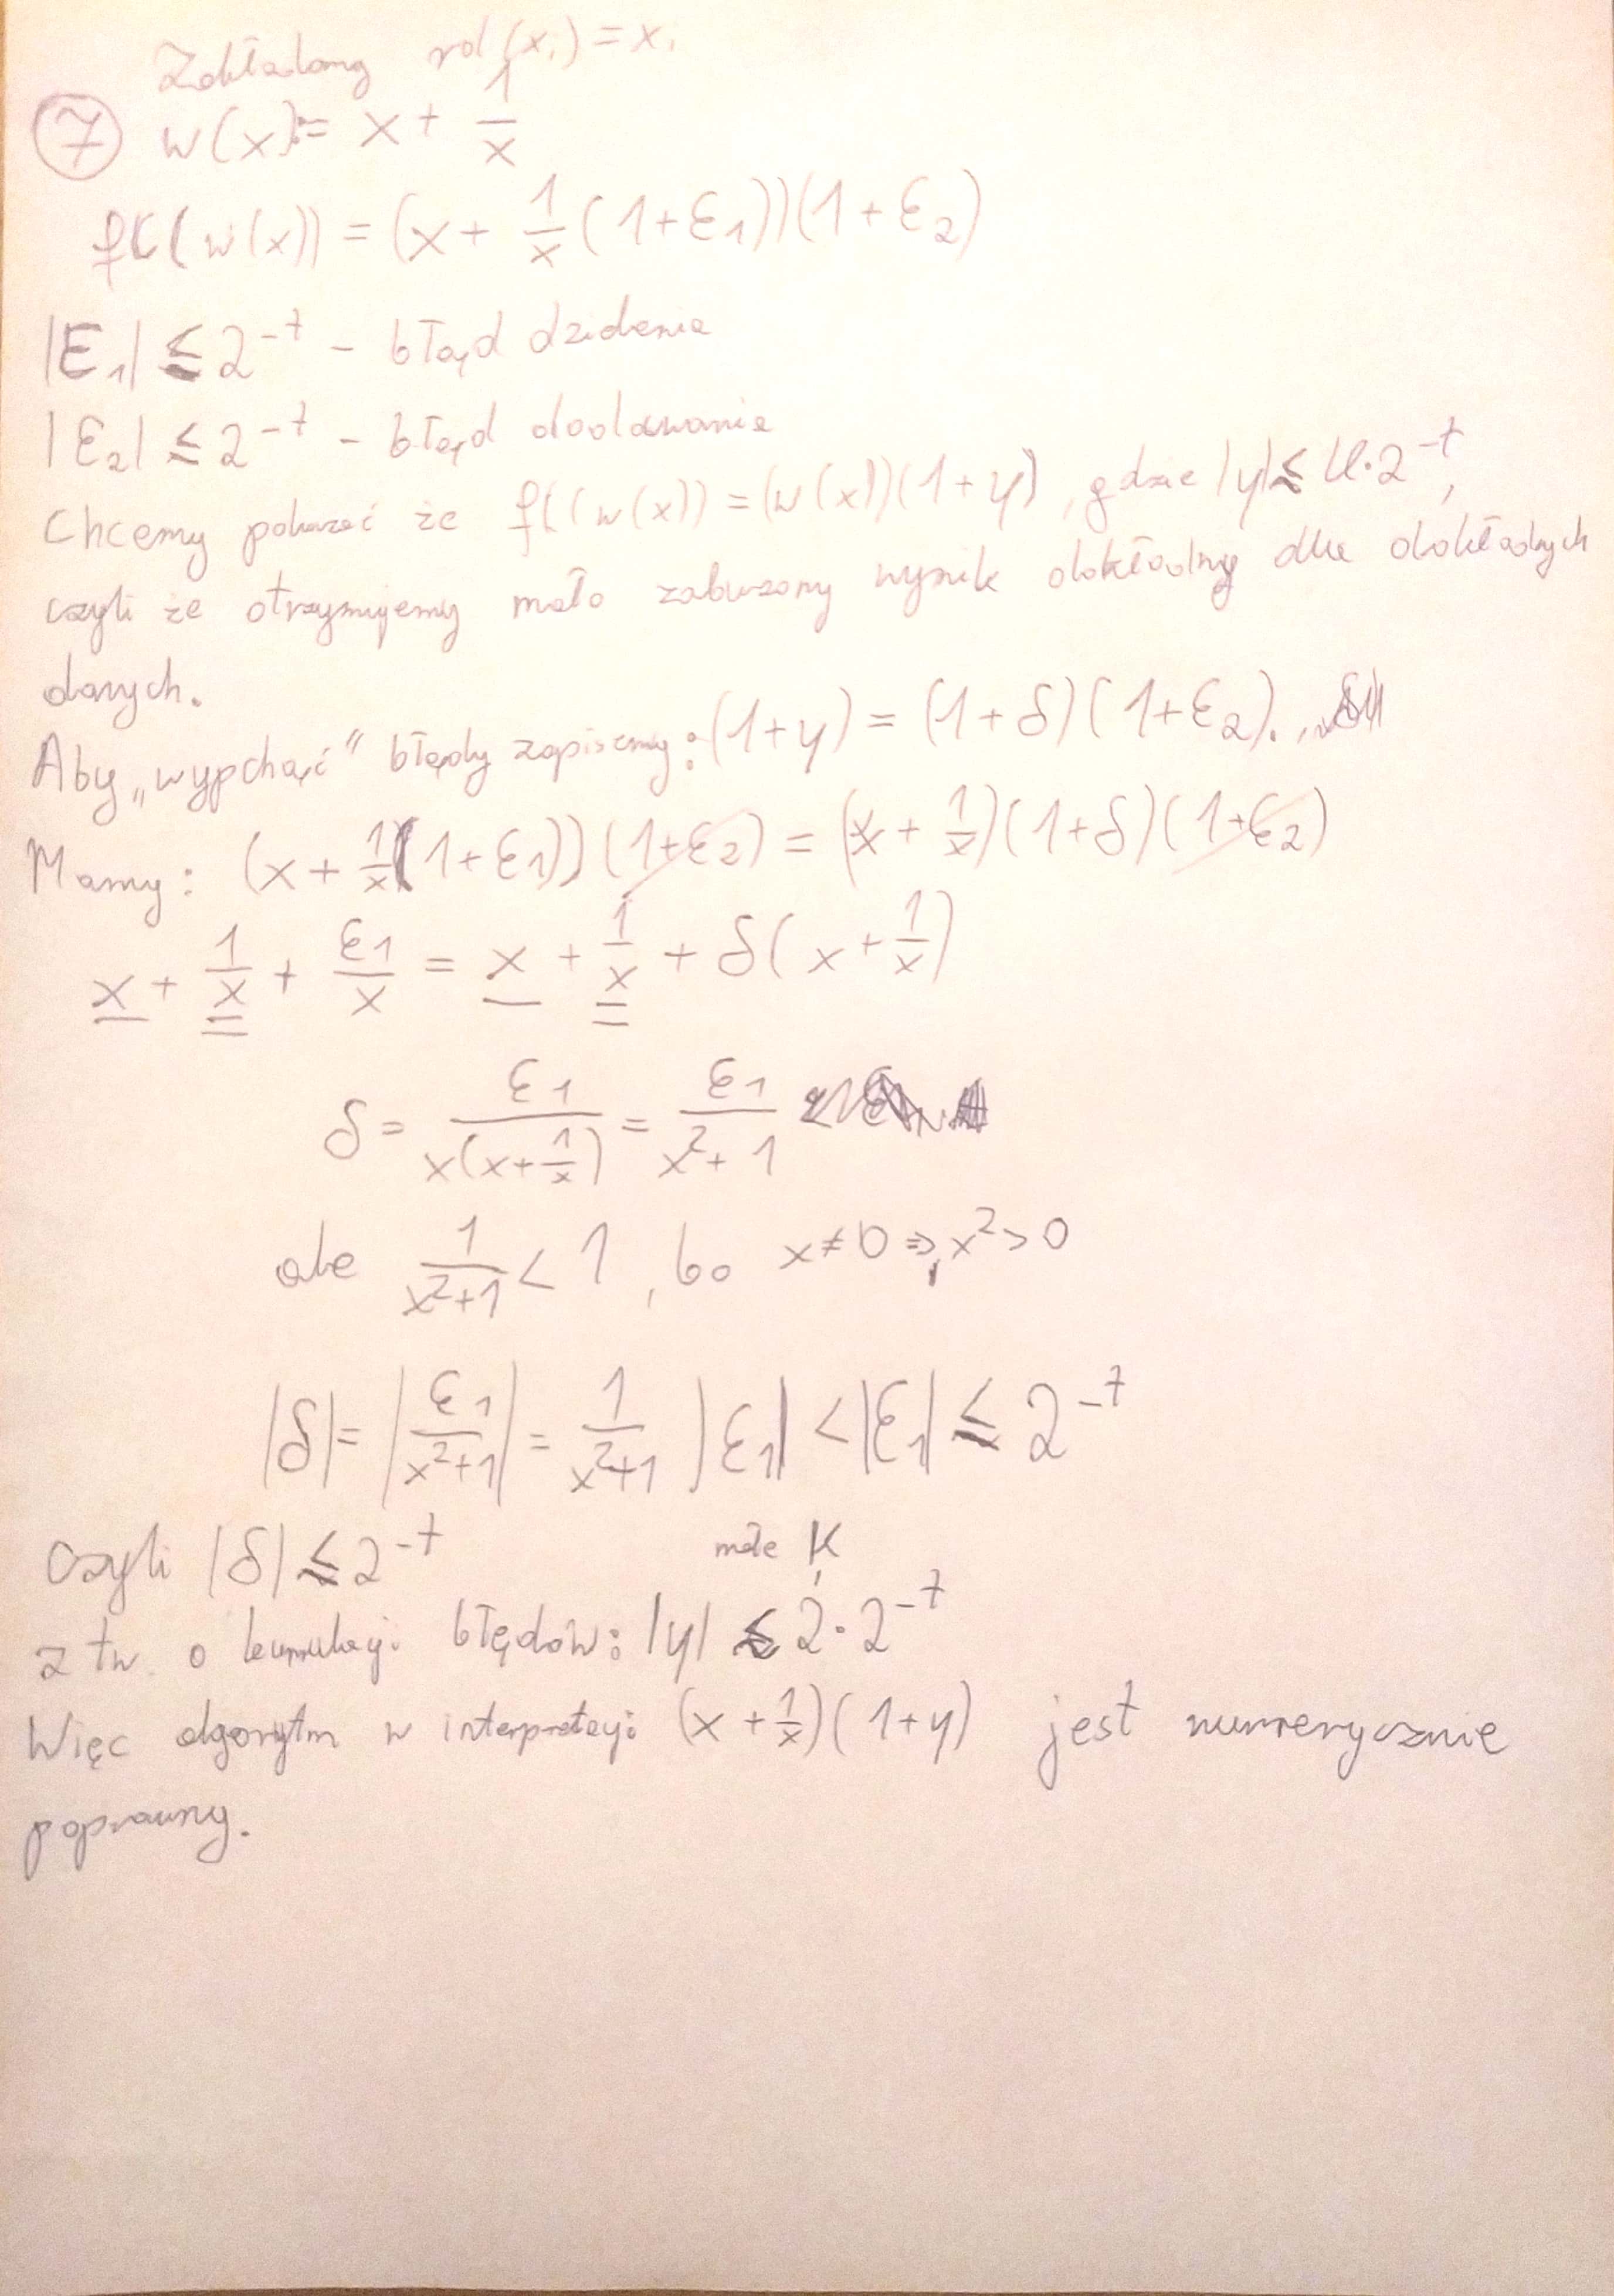 Zakładamy rd(x,) = x,
⑦ w(x) := x + 1/x
fl(w(x)) = (x + 1/x (1+ε₁))(1+ε₂)
|ε₁| ≤ 2^-t - błąd dzielenia
|ε₂| ≤ 2^-t - błąd dodawania
Chcemy pokazać że fl(w(x)) = (w(x))(1+y), gdzie |y| ≤ K·2^-t,
czyli że otrzymujemy mało zaburzony wynik dokładny dla dokładnych
danych.
Aby „wypchąć” błędy zapiszmy: (1+y) = (1+δ)(1+ε₂).
Mamy: (x + 1/x (1+ε₁))(1+ε₂) = (x + 1/x)(1+δ)(1+ε₂)
x + 1/x + ε₁/x = x + 1/x + δ(x + 1/x)
δ = ε₁/(x(x+1/x)) = ε₁/(x²+1)
ale 1/(x²+1) < 1, bo x≠0 ⇒ x² > 0
|δ| = |ε₁/(x²+1)| = 1/(x²+1) |ε₁| < |ε₁| ≤ 2^-t
Czyli |δ| ≤ 2^-t
małe K
z tw. o kumulacji błędów: |y| ≤ 2·2^-t
Więc algorytm w interpretacji (x + 1/x)(1+y) jest numerycznie
poprawny.